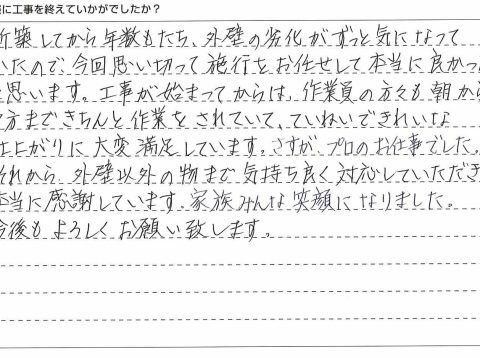 に工事を終えていかがでしたか？
築してから年数もたち、外壁の劣化がずっと気になって
いたので、今回思い切って施行をお任せして本当に良かっ
思います。工事が始まってからは、作業員の方々も朝から
方まできちんと作業をされていて、ていねいできれいな
上がりに大変満足しています。さすが、プロのお仕事でした。
それから、外壁以外の物まで気持ち良く対応していただき
本当に感謝しています。家族みんな笑顔になりました。
今後もよろしくお願い致します。